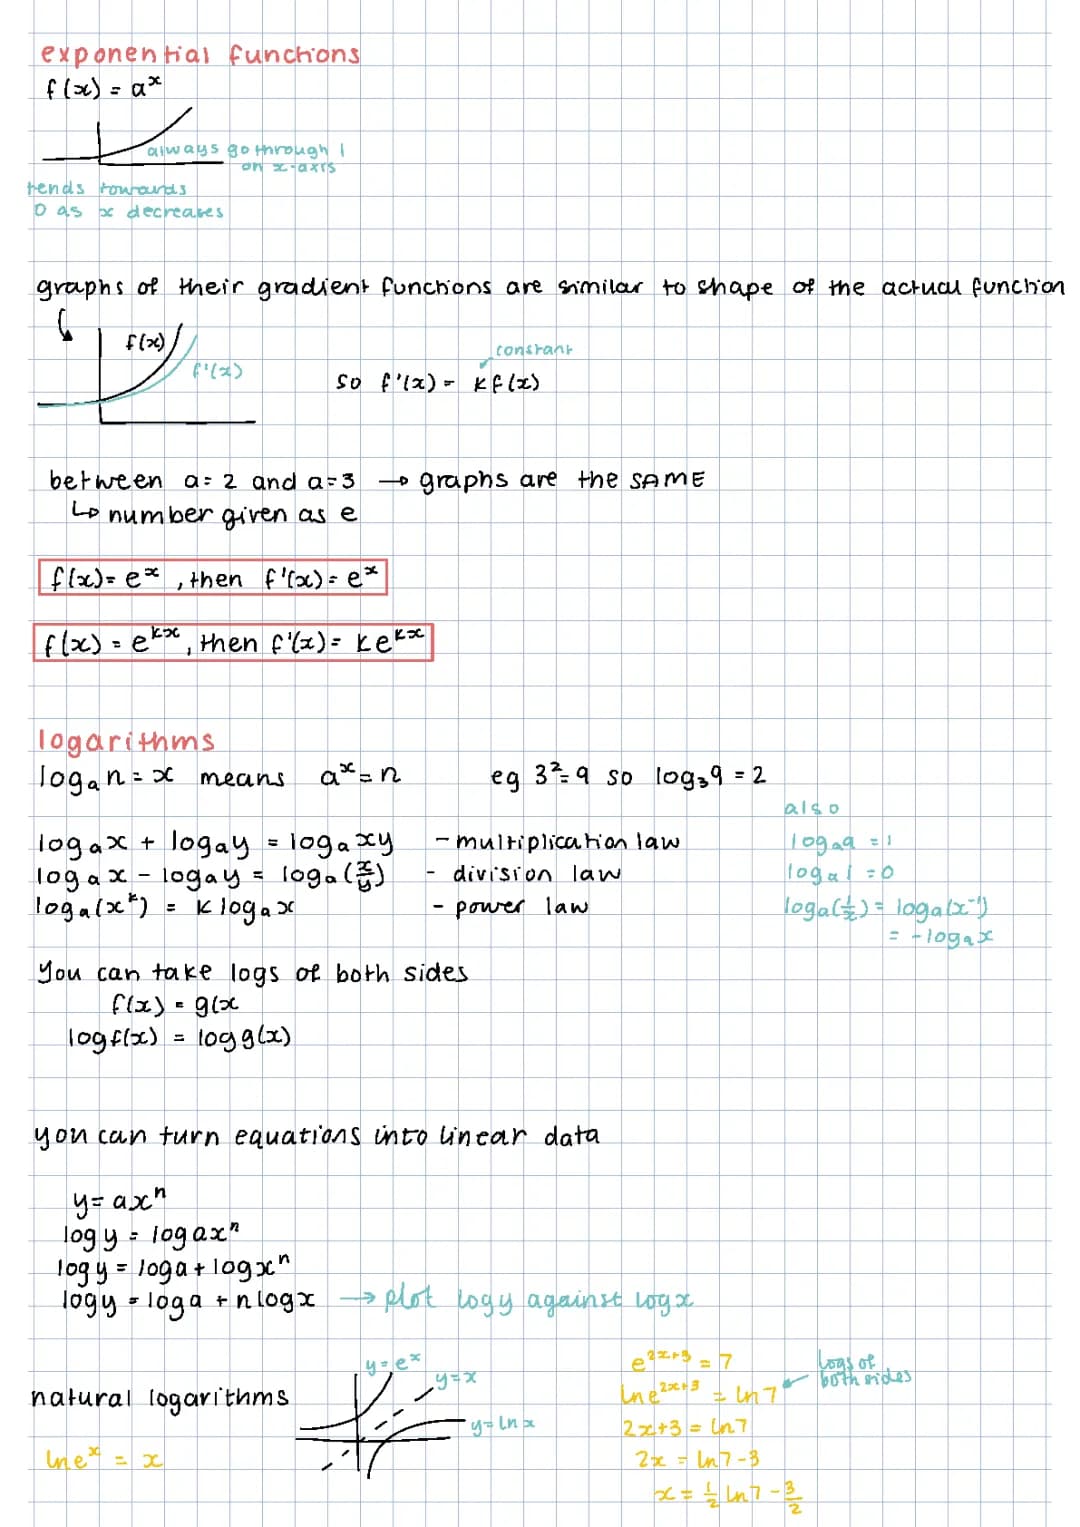 exponential functions
f(x) = a^x
always go through 1
on x-axis
tends towards
0 as x decreases
graphs of their gradient functions are similar to shape of the actual function
f(x)
f'(x)
constant
so f'(x) = kf(x)
between a=2 and a=3 → graphs are the SAME
↳ number given as e
f(x)= e^x, then f'(x)= e^x
f(x) = e^kx, then f'(x)= ke^kx
logarithms
logₐn = x means a^x = n eg 3²=9 so log₃9 = 2
also
logₐx + logₐy = logₐxy - multiplication law
logₐa = 1
logₐx - logₐy = logₐ(x/y) - division law
logₐ1 = 0
logₐ(x^k) = k logₐx - power law
logₐ(1/x) = logₐ(x⁻¹)
= -logₐx
you can take logs of both sides
f(x) = g(x
logf(x) = logg(x)
you can turn equations into linear data
y= ax^n
logy = logax^n
logy = loga + logx^n
logy = loga + nlogx → plot logy against logx
natural logarithms
lne^x = x
y=e^x
y=x
y=lnx
e^2x+3 = 7
lne^2x+3 = ln7
logs of
both sides
2x+3 = ln7
2x = ln7-3
x = 1/2 ln7 - 3/2